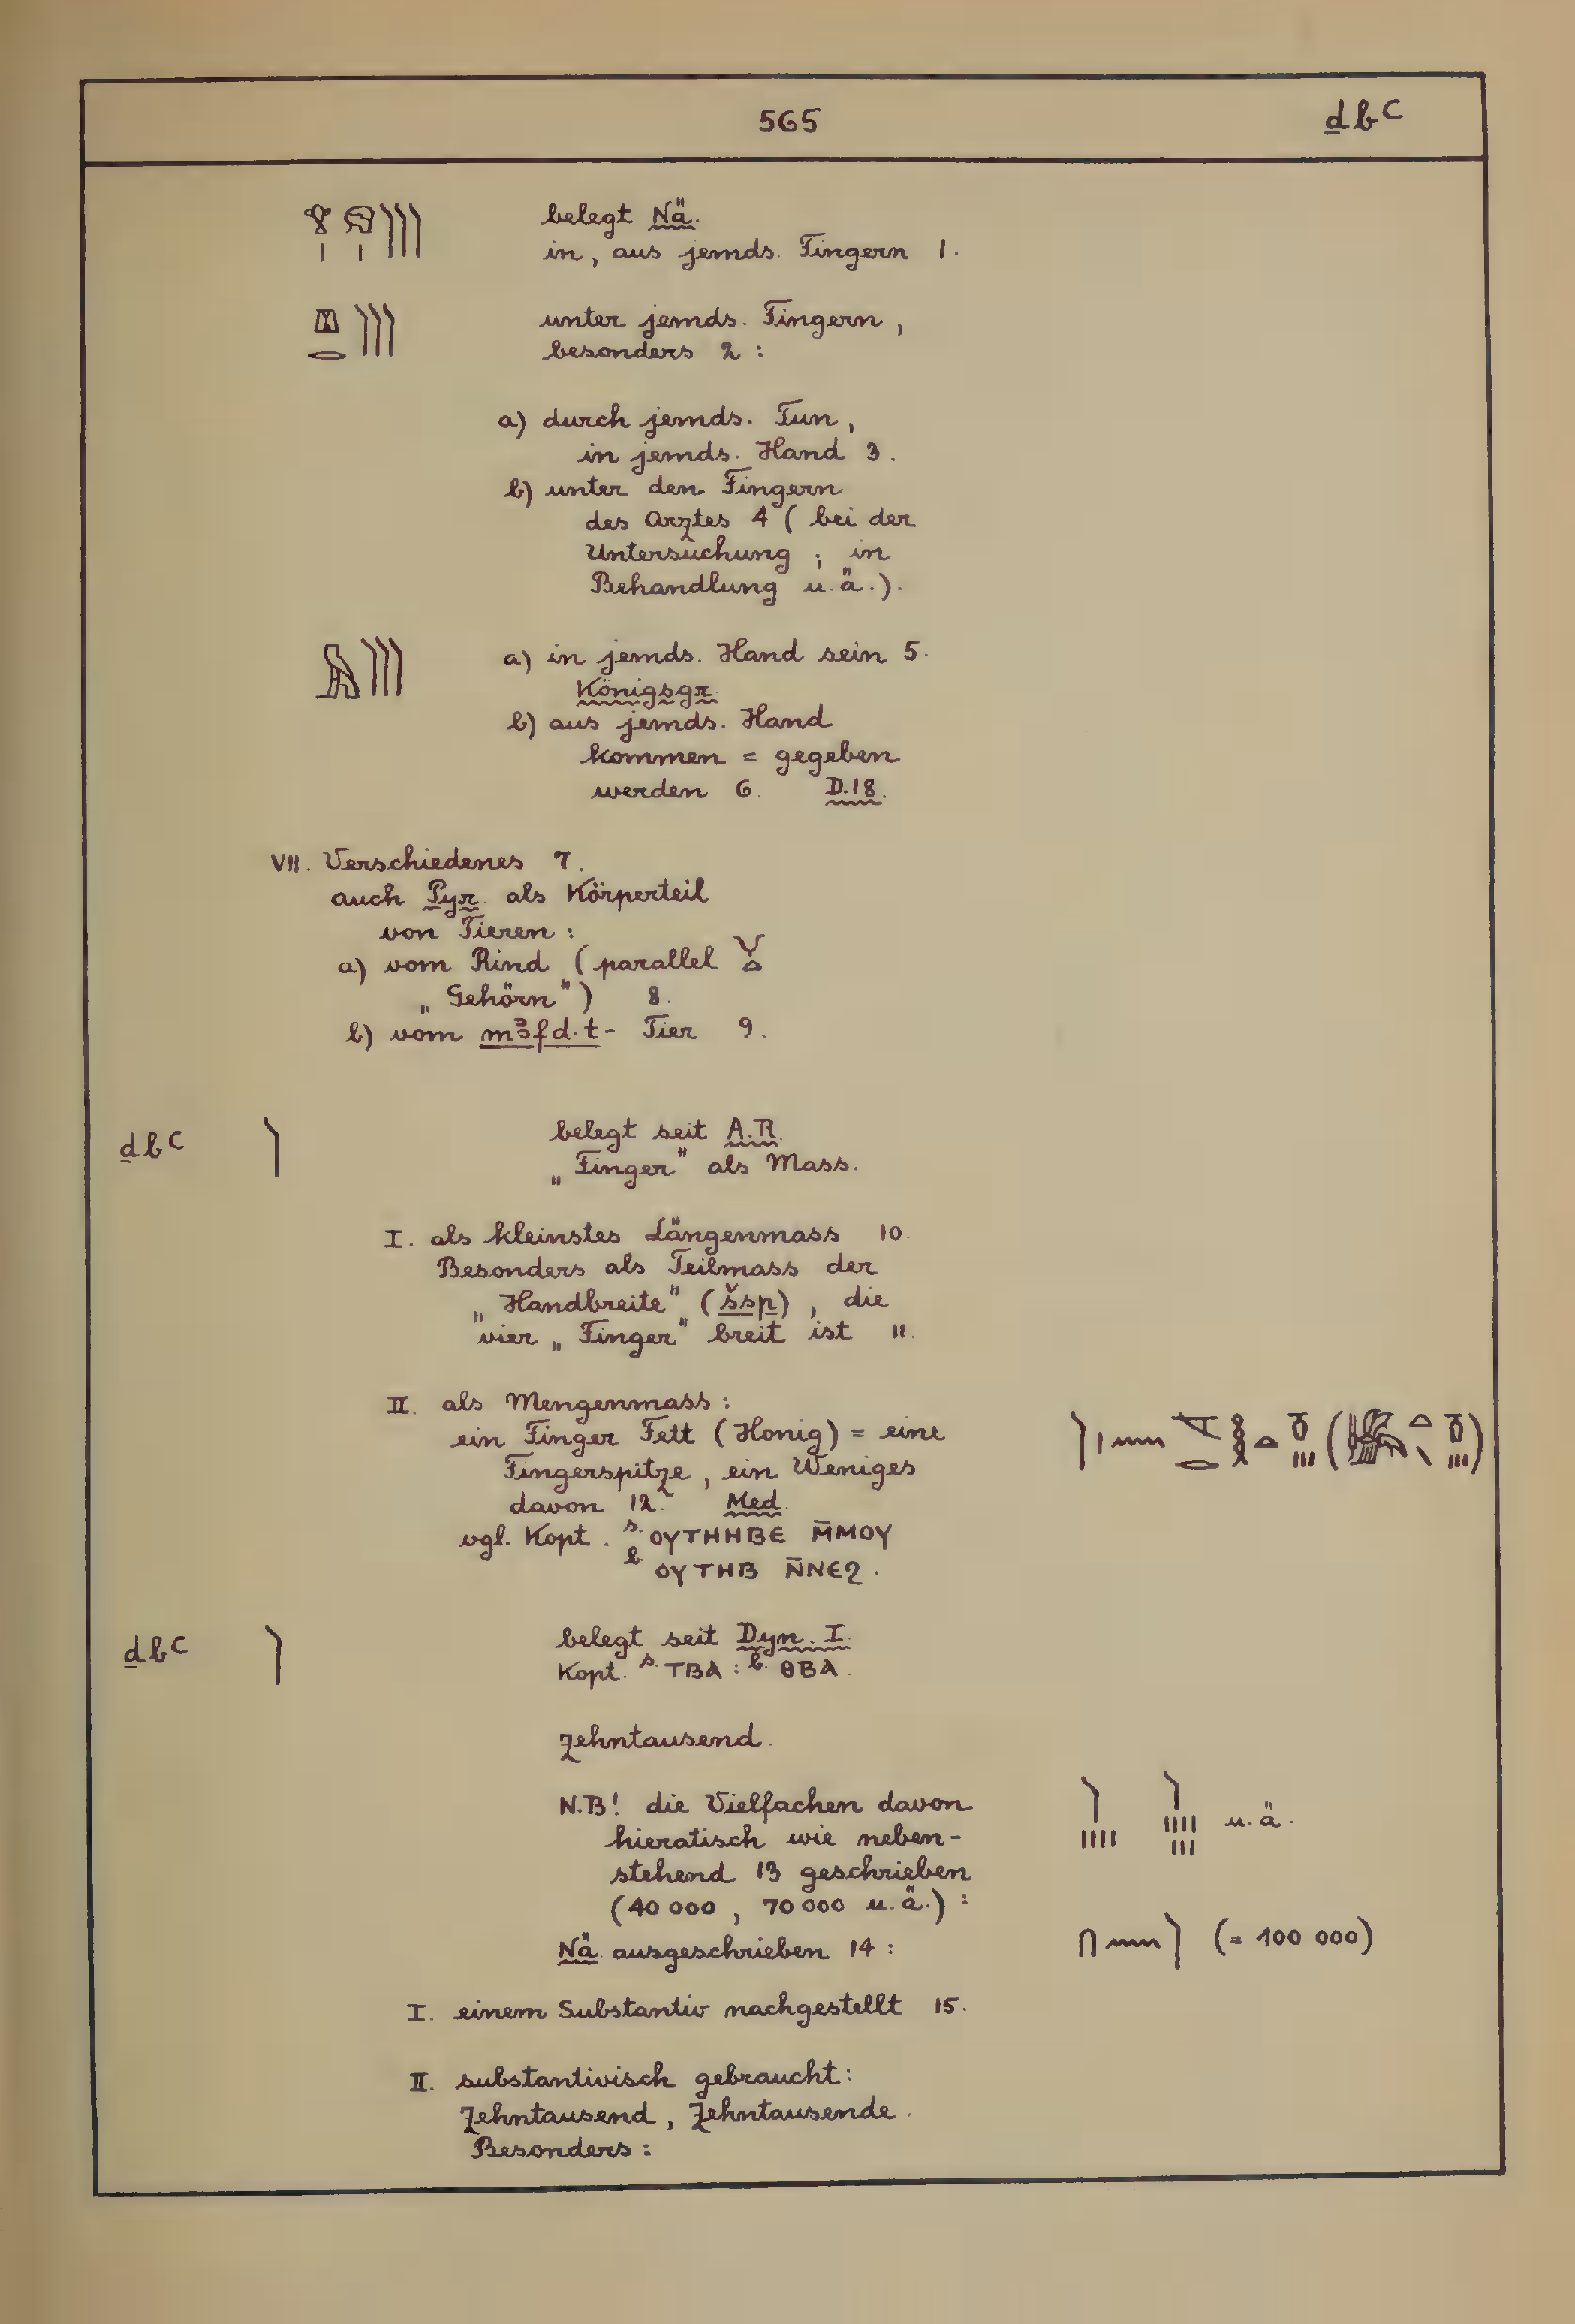 565 ḏbꜥ
belegt Nä.
in, aus jemds. Fingern 1.
unter jemds. Fingern,
besonders 2:
a) durch jemds. Tun,
in jemds. Hand 3.
b) unter den Fingern
des Arztes 4 (bei der
Untersuchung; in
Behandlung u.ä.).
a) in jemds. Hand sein 5.
Königsgr.
b) aus jemds. Hand
kommen = gegeben
werden 6. D.18.
VII. Verschiedenes 7.
auch Pyr. als Körperteil
von Tieren:
a) vom Rind (parallel
„Gehörn") 8.
b) vom mꜣfd.t- Tier 9.
ḏbꜥ 𓂭 belegt seit A.R.
„Finger" als Mass.
I. als kleinstes Längenmass 10.
Besonders als Teilmass der
„Handbreite" (šsp), die
vier „Finger" breit ist 11.
II. als Mengenmass:
ein Finger Fett (Honig) = eine
Fingerspitze, ein Weniges
davon 12. Med.
vgl. Kopt. s. ⲟⲩⲧⲏⲏⲃⲉ ⲙ̄ⲙⲟⲩ
b. ⲟⲩⲧⲏⲃ ⲛ̄ⲛⲉϩ.
ḏbꜥ 𓂭 belegt seit Dyn. I.
Kopt. s. ⲧⲃⲁ : b. ⲑⲃⲁ.
Zehntausend.
N.B! die Vielfachen davon
hieratisch wie neben- 𓂭 IIII 𓂭 IIII III u.ä.
stehend 13 geschrieben
(40 000, 70 000 u.ä.):
Nä. ausgeschrieben 14: 𓎆𓈖𓂭 (= 100 000)
I. einem Substantiv nachgestellt 15.
II. substantivisch gebraucht:
Zehntausend, Zehntausende.
Besonders: